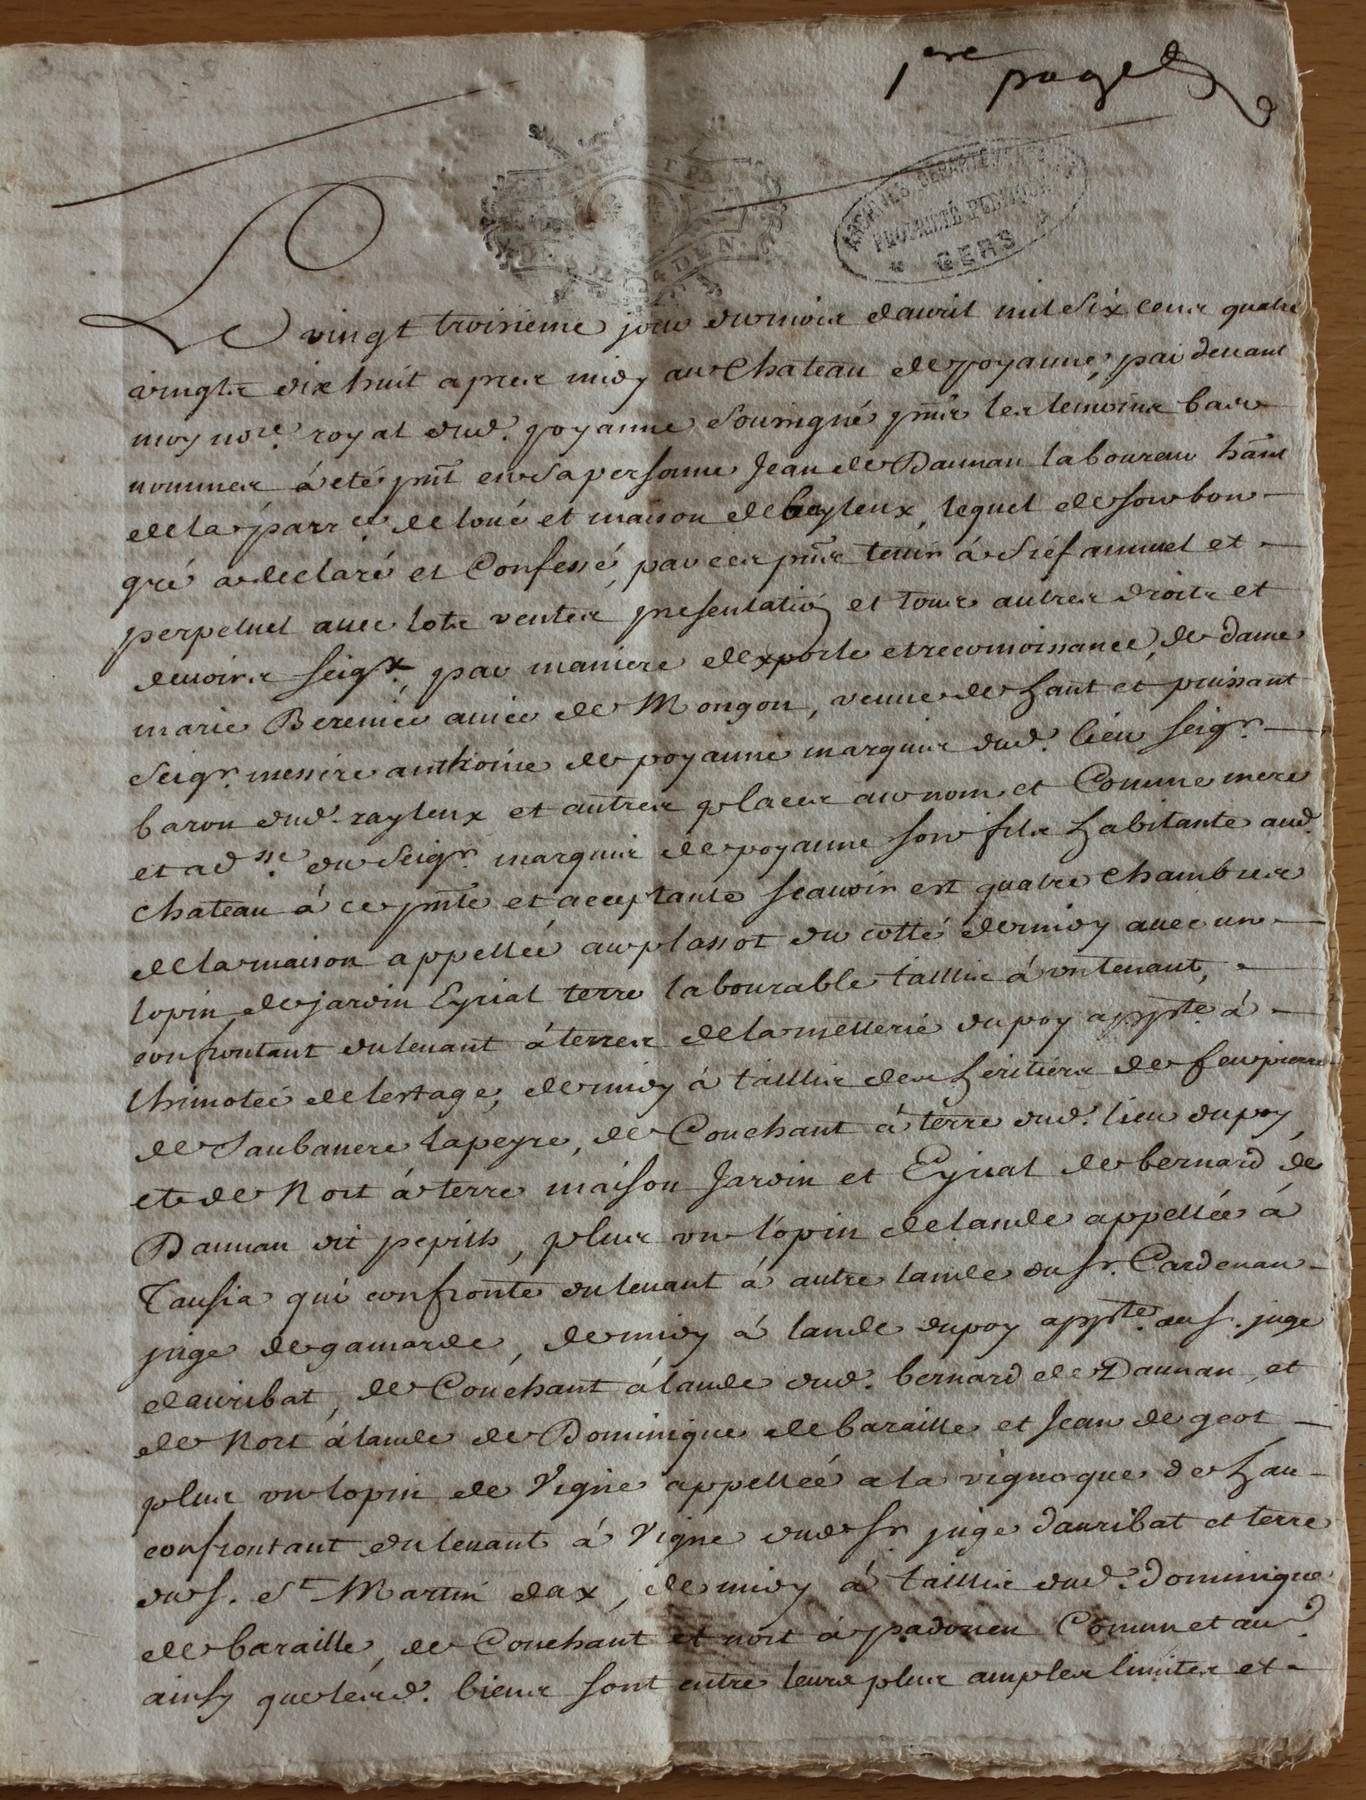 1ere page
ARCHIVES DEPARTEMENTALES
PROPRIÉTÉ PUBLIQUE
* GERS *
Le vingt troisieme jour du mois davril mil six cens quatre
vingts dix huit apres midy au Chateau de poyanne, par devant
moy nore. royal dud. poyanne soussigné pnts les temoins bas
nommes à eté pnt en sa personne Jean de Daunan laboureur hant
de la parre. de loué et maison de Cayleux, lequel de son bon
gré a declaré et Confessé, par ces pntes tenir à fief annuel et
perpetuel avec lots ventes, presentatio et tous autres droits et
devoirs seigx. par maniere dexporle et reconnoissance, de dame
marie Berenice aurée de Mongon, veuve de haut et puissant
Seigr. messire anthoine de poyanne marquis dud. lieu seigr.
baron dud. cayleux et autres places au nom et Comme mere
et adne. du Seigr. marquis de poyanne son fils habitante aud.
chateau à ce pnte et acceptante scavoir est quatre chambres
de la maison appellée au plassot du cotté de midy avec un
lopin de jardin Eyrial terre labourable taillis à un tenant,
confrontant du levant à terres de la metterie du poy appte. à
thimotée de lestage, de midy à taillis des heritiers de feu pierre
de Saubanere lapeyre, de Couchant à terre dud. lieu du poy,
et de Nort à terre maison Jardin et Eyrial de bernard de
Daunan dit pepith, plus un lopin de lande appellée à
Tausia qui confronte du levant à autre lande du sr. Cardenau
juge de gamarde, de midy à lande du poy appte. au s. juge
dauribat, de Couchant à lande dud. bernard de Daunan, et
de Nort à lande de Dominique de baraille et Jean de geot
plus un lopin de Vigne appellée a la vignoque de hau
confrontant du levant à Vigne dud sr juge dauribat et terre
du s. St Martin dax, de midy à taillis dud. Dominique
de baraille, de Couchant et nort à padouen Comun et aud.
ainsy que lesd. biens sont entre leurs plus amples limites et